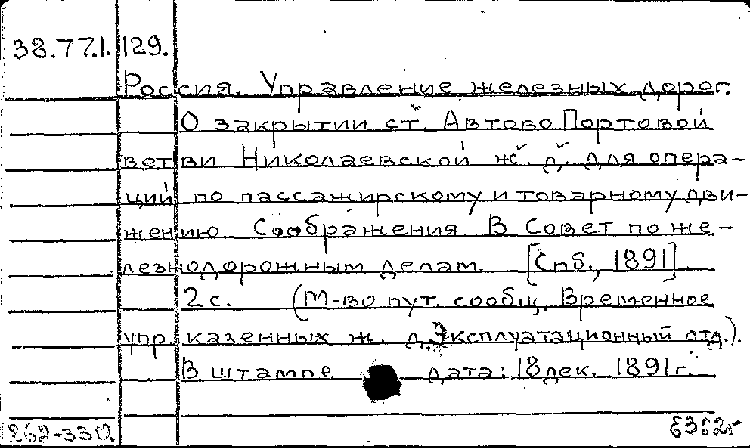 38.77.1. 129.
Россия. Управление железных дорог.
О закрытии ст. Автово Портовой
ветви Николаевской ж. д. для опера-
ций по пассажирскому и товарному дви-
жению. Соображения. В Совет по же-
лезнодорожным делам. [Спб., 1891]
2 с. (М-во пут. сообщ. Временное
упр. казенных ж. д. Эксплуатационный отд.).
В штампе дата: 18 дек. 1891 г.